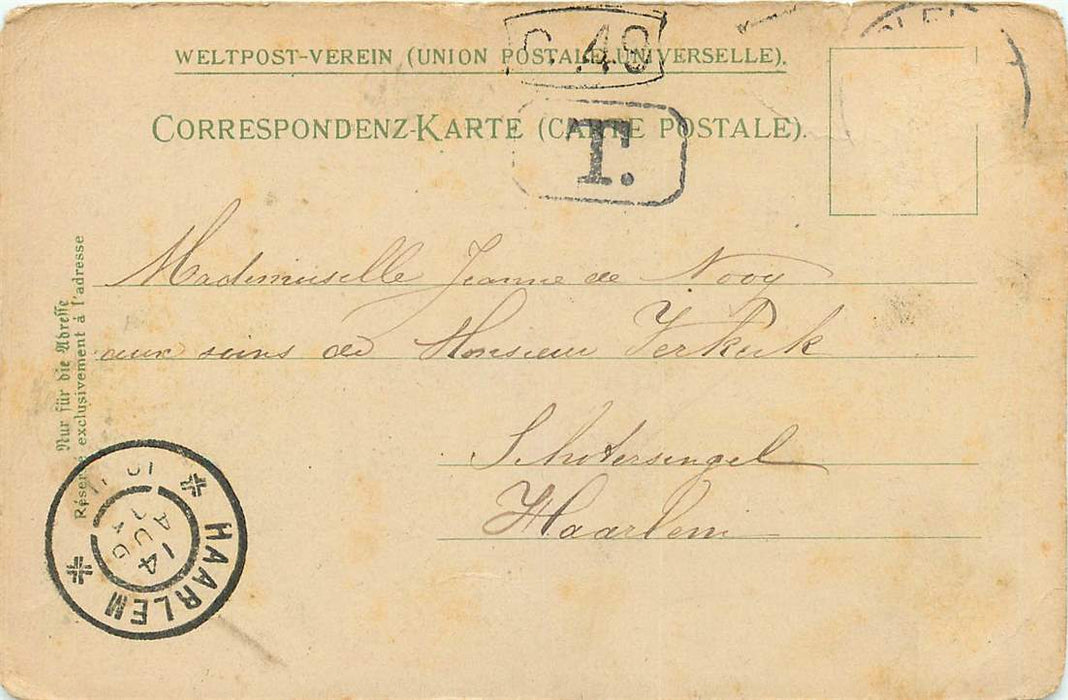 WELTPOST-VEREIN (UNION POSTALE UNIVERSELLE).
C. 48
CORRESPONDENZ-KARTE (CARTE POSTALE).
T.
Mademoiselle Jeanne de Nooy
aux soins de Monsieur Kerkerk
Schotersingel
Haarlem
Nur für die Adresse
Réservé exclusivement à l'adresse
HAARLEM
14
AUG